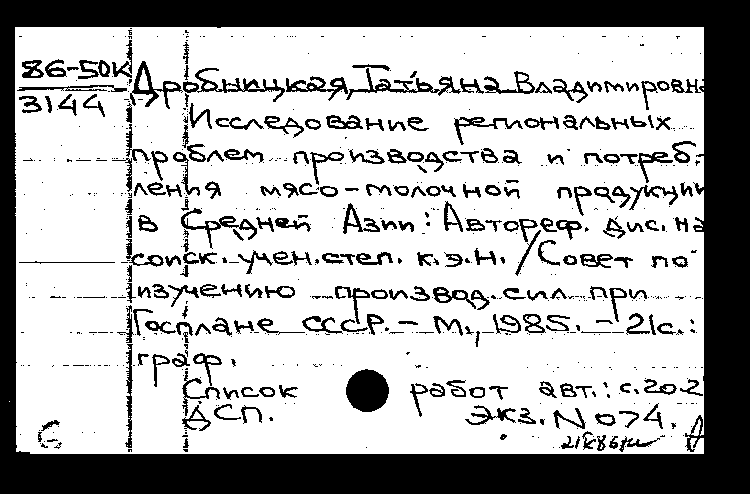 86-50к Дробницкая, Татьяна Владимировна
3144
Исследование региональных
проблем производства и потреб-
ления мясо-молочной продукции
в Средней Азии: Автореф. дис. на
соиск. учен. степ. к.э.н. / Совет по
изучению производ. сил при
Госплане СССР. - М., 1985. - 21с.:
граф.
Список работ авт.: с. 20-2
ДСП. Экз. N 074.
6